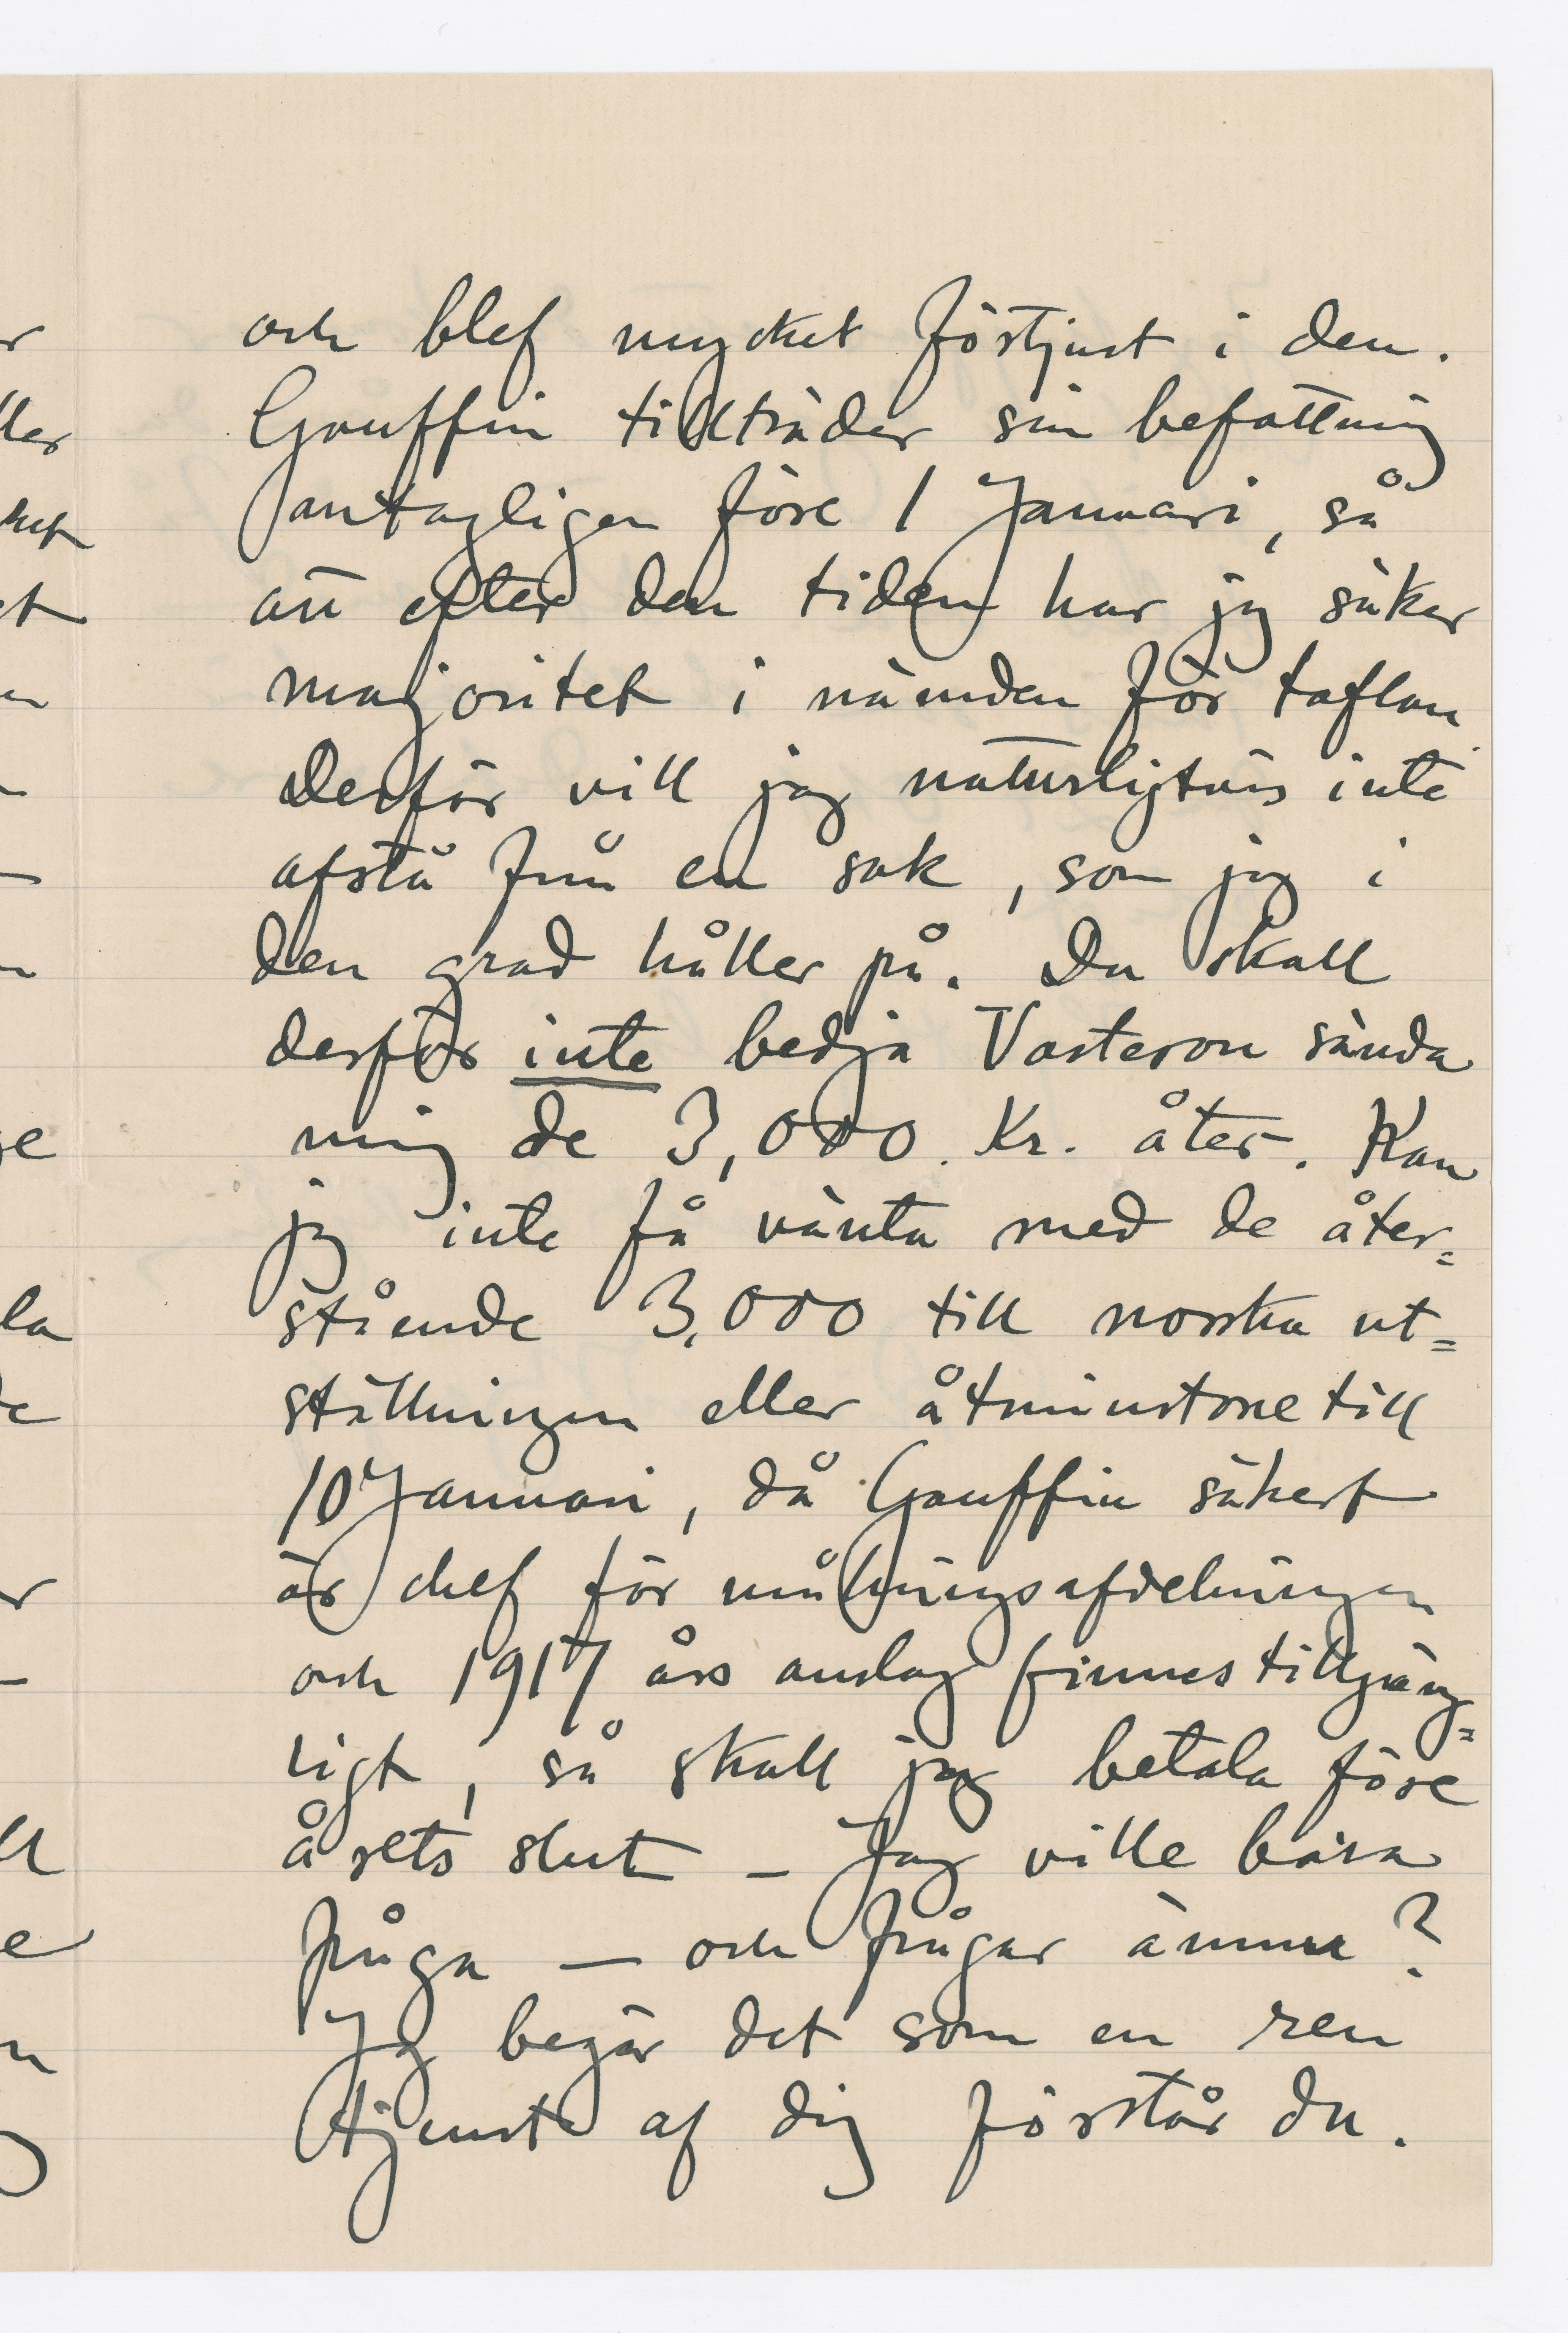 och blef mycket förtjust i den.
Gauffin tillträder sin befattning
antagligen före 1 Januari, så
att efter den tiden har jag säker
majoritet i nämnden för taflan.
Derför vill jag naturligtvis inte
afstå från en sak, som jag i
den grad håller på. Du skall
derför inte bedja Vasteson sända
mig de 3,000. Kr. åter. Kan
jag inte få vänta med de åter=
stående 3,000 till norska ut=
ställningen eller åtminstone till
10 Januari, då Gauffin säkert
är chef för målningsafdelningen
och 1917 års anslag finnes tillgäng=
ligt, så skall jag betala före
årets slut – Jag ville bara
fråga – och frågar ännu?
Jag begär det som en ren
tjenst af dig förstår du.